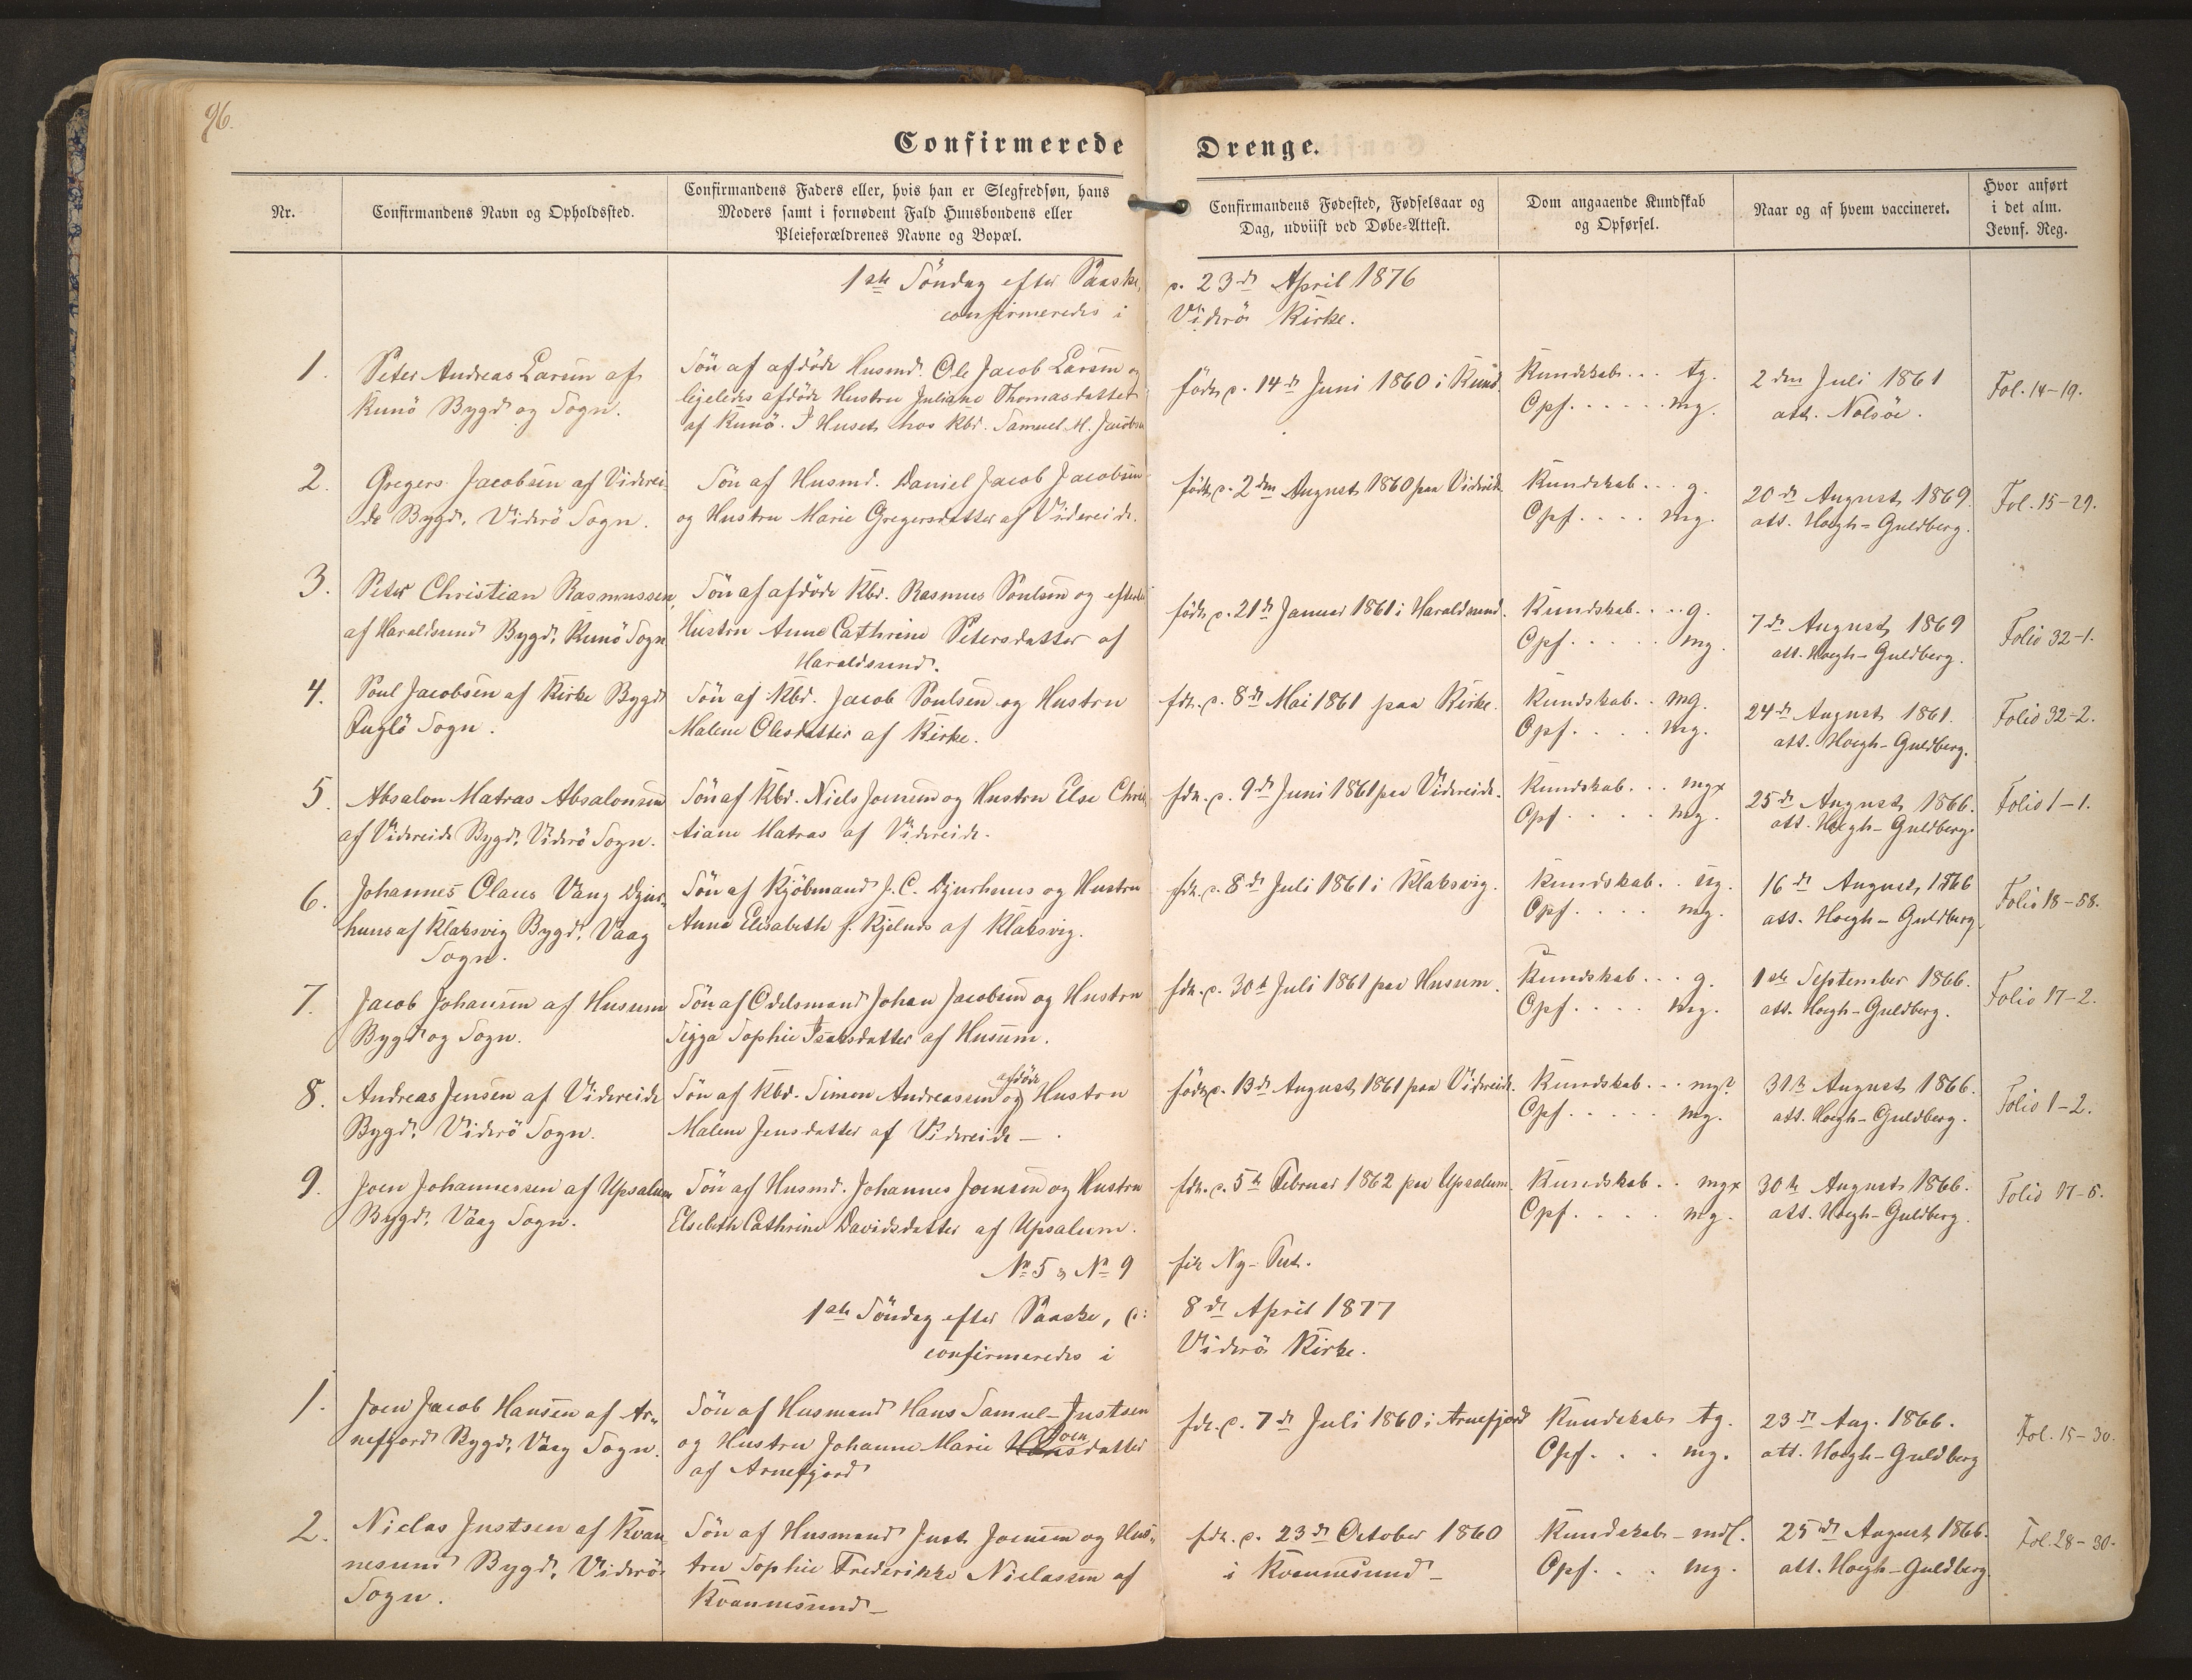 96.
Confirmerede Drenge.
Nr.
Confirmandens Navn og Opholdssted.
Confirmandens Faders eller, hvis han er Slegfredsøn, hans
Moders samt i fornødent Fald Huusbondens eller
Pleieforældrenes Navne og Bopæl.
Confirmandens Fødested, Fødselsaar og
Dag, udviist ved Døbe-Attest.
Dom angaaende Kundskab
og Opførsel.
Naar og af hvem vaccineret.
Hvor anført
i det alm.
Jevnf. Reg.
1ste Söndag efter Paaske, d. 23de April 1876
confirmeredes i Viderö Kirke.
1.
Peter Andreas Larsen af
Kunö Bygd og Sogn.
Sön af afdöde Husmd. Ole Jacob Larsen og
ligeledes afdöde Hustru Juliane Thomasdatter
af Kunö. I Huset hos Kbd. Samuel M. Jacobsen
födt d. 14de Juni 1860 i Kunö.
Kundskab... tg.
Opf..... mg.
2den Juli 1861
att. Nolsöe.
Fol. 14-19.
2.
Gregers Jacobsen af Viderei-
de Bygd, Viderö Sogn.
Sön af Husmd. Daniel Jacob Jacobsen
og Hustru Marie Gregersdatter af Videreide.
födt d. 2den August 1860 paa Videreide.
Kundskab... g.
Opf.... mg.
20de August 1869
att. Hoegh-Guldberg.
Fol. 15-29.
3.
Peter Christian Rasmussen,
af Haraldsund Bygd, Kunö Sogn
Sön af afdöde Kbd. Rasmus Poulsen og
Hustru Anne Cathrine Petersdatter af
Haraldsund.
födt d. 21de Januar 1861 i Haraldsund.
Kundskab.... g.
Opf..... mg.
7de August 1869
att. Hoegh-Guldberg.
Folio 32-1.
4.
Poul Jacobsen af Kirke Bygd
Fuglö Sogn.
Sön af Kbd. Jacob Poulsen og Hustru
Malene Olesdatter af Kirke.
fdt. d. 8de Mai 1861 paa Kirke.
Kundskab.. mg.
Opf.... mg.
24de August 1861.
att. Hoegh-Guldberg.
Folio 32-2.
5.
Absalon Matras Absalonsen
af Videreide Bygd, Viderö Sogn.
Sön af Kbd. Niels Joensen og Hustru Else Chris
tiane Matras af Videreide.
fdt. d. 9de Juni 1861 paa Videreide.
Kundskab... mgx
Opf.... mg.
25de August 1866.
att. Hoegh-Guldberg.
Folio 1-1.
6.
Johannes Claus Vang Djur-
huus af Klaksvig Bygd, Vaag
Sogn.
Sön af Kjöbmand J. C. Djurhuus og Hustru
Anna Elisabeth f. Kjelnæs af Klaksvig.
fdt. d. 8de Juli 1861 i Klaksvig.
Kundskab.. ug.
Opf.... mg.
16de August 1866
att. Hoegh-Guldberg.
Folio 18-58.
7.
Jacob Johansen af Husum
Bygd og Sogn.
Sön af Odelsmand Johan Jacobsen og Hustru
Sigga Sophie Isaksdatter af Husum.
fdt. d. 30te Juli 1861 paa Husum.
Kundskab... g.
Opf.... mg.
1ste September 1866.
att. Hoegh-Guldberg.
Folio 17-2.
8.
Andreas Jensen af Videreide
Bygd, Viderö Sogn.
afdöde
Sön af Kbd. Simon Andreassen og Hustru
Malene Jensdatter af Videreide —.
födt d. 13de August 1861 paa Videreide.
Kundskab... mg?
Opf..... mg.
31te August 1866.
att. Hoegh-Guldberg.
Folio 1-2.
9.
Joen Johannessen af Upsalum
Bygd, Vaag Sogn.
Sön af Husmd. Johannes Joensen og Hustru
Elsebeth Cathrine Davidsdatter af Upsalum.
fdt. d. 5te Februar 1862 paa Upsalum.
Kundskab.. mgx
Opf.... mg.
30te August 1866.
att. Hoegh-Guldberg.
Folio 17-6.
No 5 & No 9 fik Ny-Test.
1ste Söndag efter Paaske, d: 8de April 1877
confirmeredes i Viderö Kirke.
1.
Joen Jacob Hansen af Ar-
nefjord Bygd, Vaag Sogn.
Sön af Husmand Hans Samuel Justsen
Joen
og Hustru Johanne Marie Hansdatter
af Arnefjord
fdt. d. 7de Juli 1860 i Arnefjord
Kundskab tg.
Opf... mg.
23de Aug. 1866.
att. Hoegh-Guldberg
Fol. 15-30.
2.
Niclas Justsen af Kvan
nesund Bygd, Viderö
Sogn.
Sön af Husmand Just Joensen og Hus-
tru Sophie Frederikke Niclassen af
Kvannesund —
fdt. d. 23de October 1860
i Kvannesund —
Kundskab - mdl.
Opf... mg.
25de August 1866.
att. Hoegh-Guldberg.
Fol. 28-30.